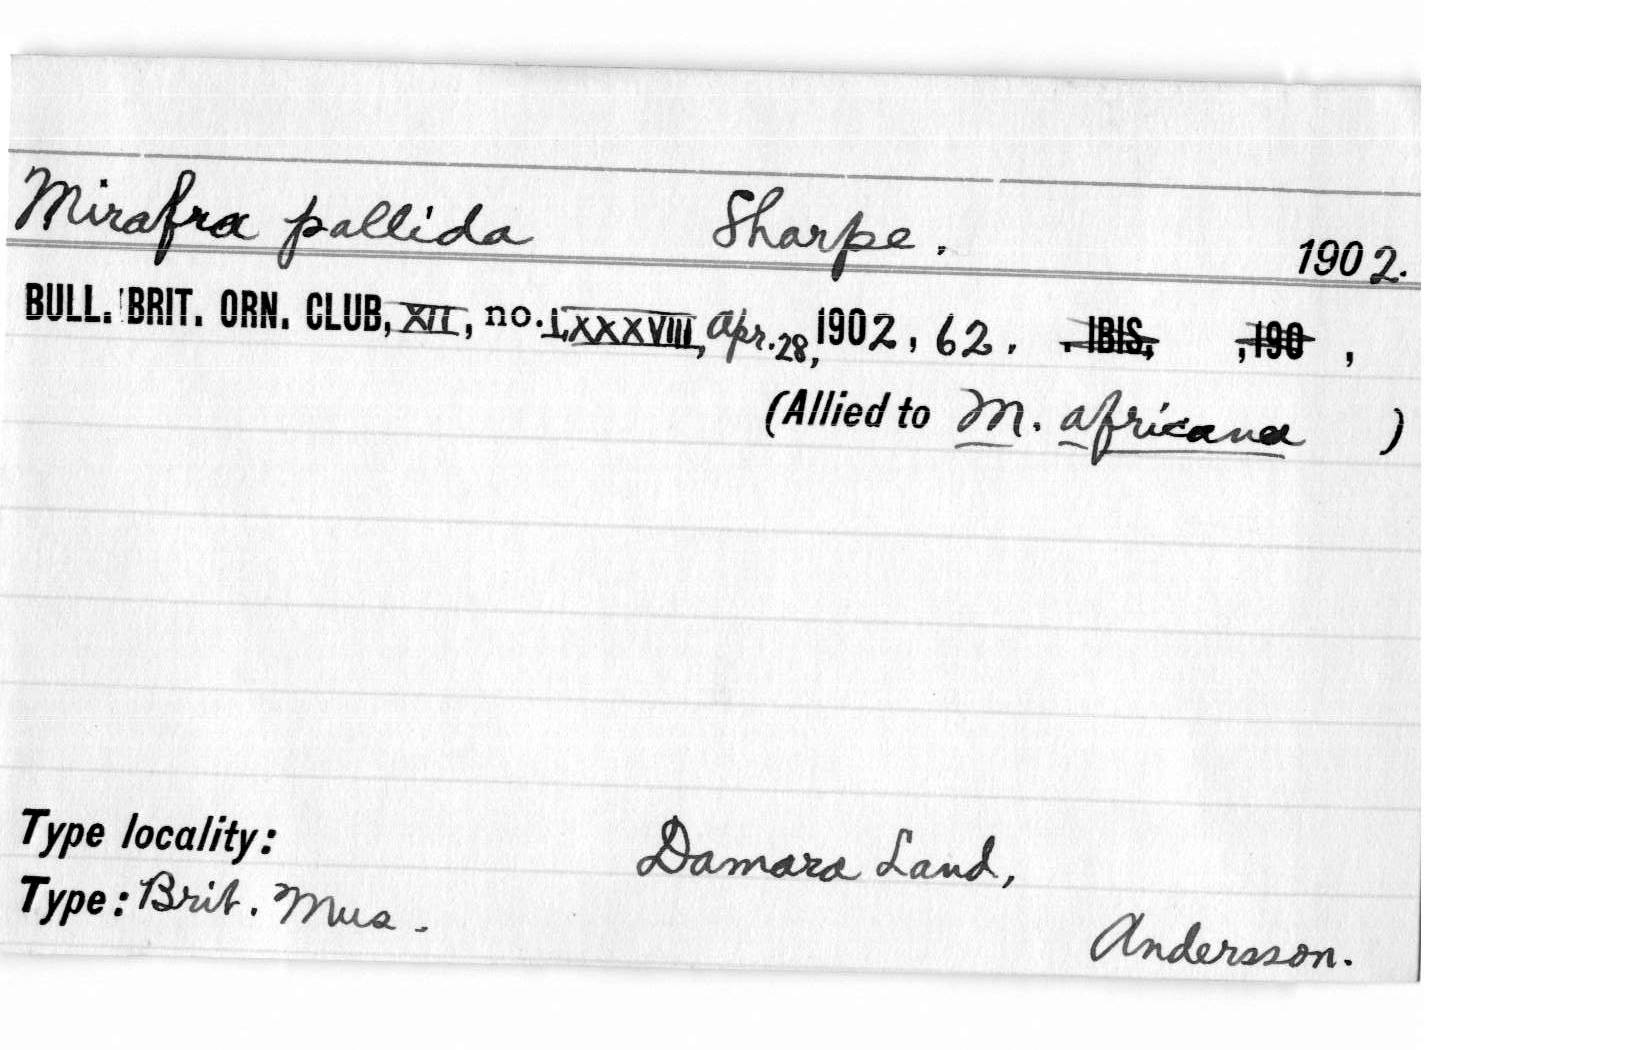 Mirafra pallida Sharpe. 1902.
BULL. BRIT. ORN. CLUB, XII, no. LXXXVIII, Apr. 28, 1902, 62. . IBIS, , 190 ,
(Allied to M. africana )
Type locality: Damara Land,
Type: Brit. Mus. Andersson.